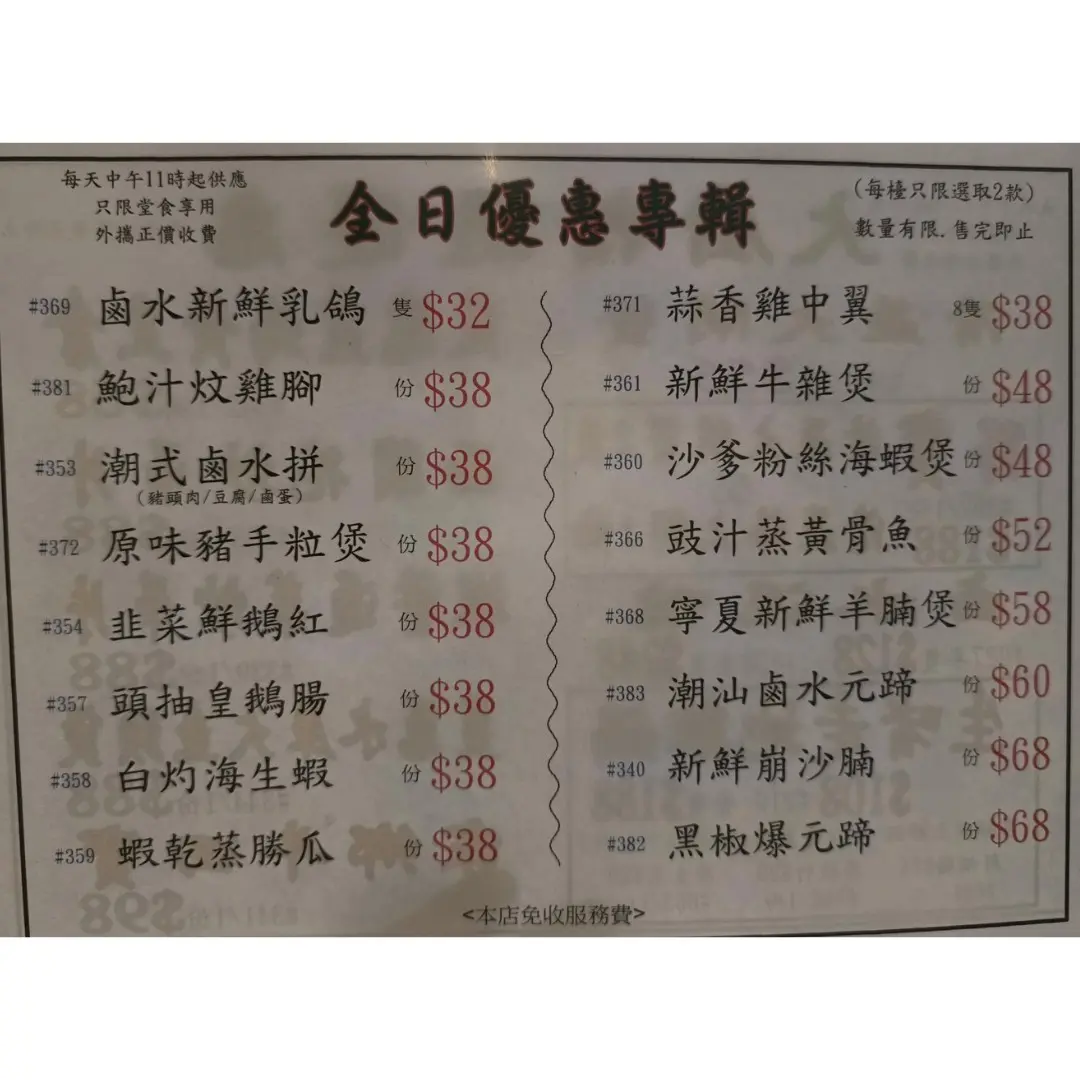 每天中午11時起供應
只限堂食享用
外攜正價收費
全日優惠專輯
(每檯只限選取2款)
數量有限.售完即止
#369 鹵水新鮮乳鴿 隻 $32
#381 鮑汁炆雞腳 份 $38
#353 潮式鹵水拼 份 $38
(豬頭肉/豆腐/鹵蛋)
#372 原味豬手粒煲 份 $38
#354 韭菜鮮鵝紅 份 $38
#357 頭抽皇鵝腸 份 $38
#358 白灼海生蝦 份 $38
#359 蝦乾蒸勝瓜 份 $38
#371 蒜香雞中翼 8隻 $38
#361 新鮮牛雜煲 份 $48
#360 沙爹粉絲海蝦煲 份 $48
#366 豉汁蒸黃骨魚 份 $52
#368 寧夏新鮮羊腩煲 份 $58
#383 潮汕鹵水元蹄 份 $60
#340 新鮮崩沙腩 份 $68
#382 黑椒爆元蹄 份 $68
<本店免收服務費>